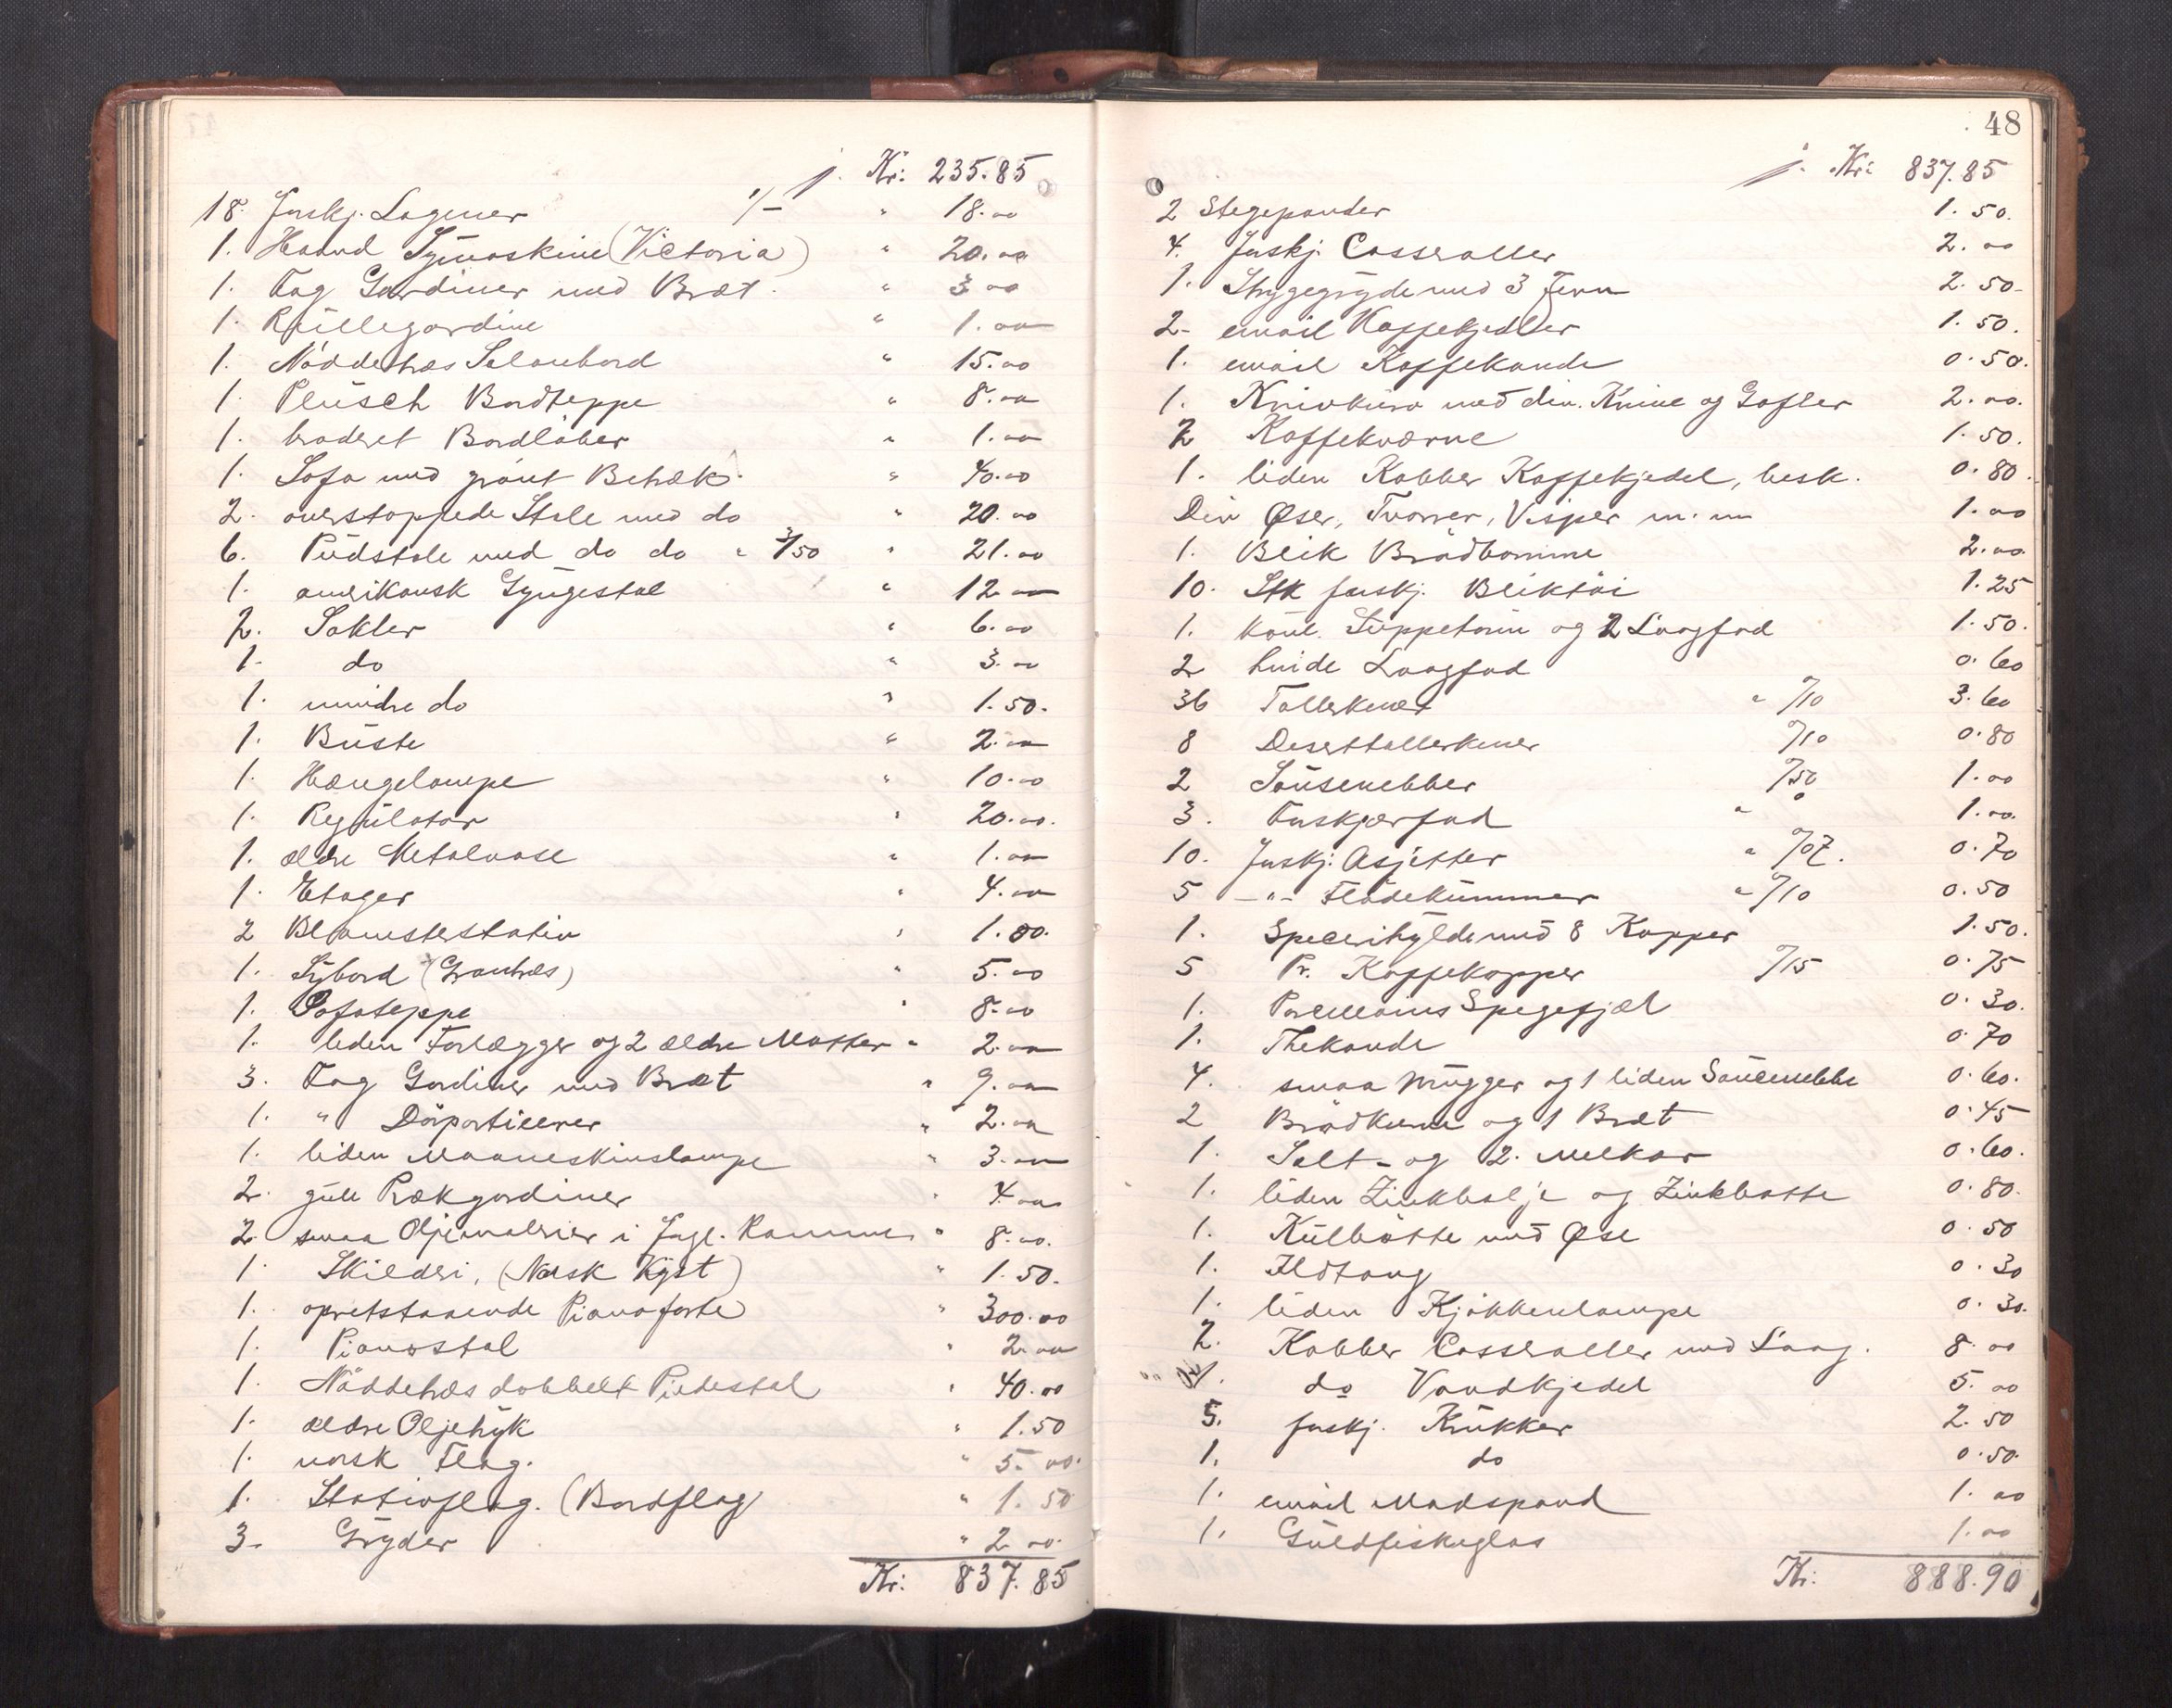 Kr: 235.85
18. forskj. Lagener 1/- " 18.00
1. Haand Symaskine (Victoria) " 20.00
1. Fag Gardiner med Bræt. " 3.00
1. Rullegardine " 1.00
1. Nöddetræs Salonbord " 15.00
1. Plüsch Bordteppe " 8.00
1. broderet Bordløber " 1.00
1. Sofa med grønt Betræk " 40.00
2. overstoppede Stole med do " 20.00
6. Pudstole med do do " 3/50 " 21.00
1. amerikansk Gyngestol " 12.00
2. Sokler " 6.00
1. do " 3.00
1. mindre do " 1.50.
1. Büste " 2.00
1. Hængelampe " 10.00
1. Regulator " 20.00.
1. ældre Metalvase " 1.00
1. Etager " 4.00
2 Blomsterstativ " 1.80.
1. Sybord (Grantræs) " 5.00
1. Sofateppe " 8.00
1. liden Forlægger og 2 ældre Matter " 2.00
3. Fag Gardiner med Bræt " 9.00
1. " Dörportierer " 2.00
1. liden Maaneskinslampe " 3.00
2. gule Trækgardiner " 4.00
2 smaa Oljemalerier i forgl. Ramme " 8.00.
1. Skilderi, (Norsk Kyst) " 1.50.
1. opretstaaende Pianoforte " 300.00
1. Pianostol " 2.00
1. Nöddetræs dobbelt Piedestal " 40.00
1. ældre Oljetryk " 1.50
1. norsk Flag. " 5.00.
1. Stativflag. (Bordflag) " 1.50
3. Gryder " 2.00.
Kr: 837.85
48
Kr: 837.85
2 Stegepander 1.50.
4. forskj. Casseroller 2.00
1. Strygegryde med 3 Jern 2.50
2- email Kaffekjedler 1.50.
1. email Kaffekande 0.50.
1. Knivkurv med div. Knive og Gafler 2.00.
2 Kaffekværne 1.50.
1. liden Kobber Kaffekjedel, besk. 0.80.
Div Øser, Tvorer, Visper m.m 1.00
1. Blik Brödtromme 2.00.
10. Stk forskj. Bliktöi 1.25
1. koul. Suppeterin og 2 Laagfad 1.50.
2 hvide Laagfad 0.60
36 Tallerkener " 0/10 3.60
8 Deserttallerkener 0/10 0.80
2 Sausenebber 0/50 1.00
3. Enskjærfad " 1.00.
10. forskj. Asjetter " 0/07. 0.70
5 -"- Flödekummer " 0/10 0.50
1. Specerihylde med 8 Kopper 1.50.
5 Pr. Kaffekopper 0/15 0.75
1. Porcellains Spegefjæl 0.30.
1. Thekande 0.70
4. smaa Mugger og 1 liden Saucenebbe 0.60.
2 Brödkurve og 1 Bræt 0.45
1. Salt- og 2. Melkar 0.60.
1. liden Zinkbalje og Zinkbøtte 0.80.
1. Kulbøtte med Øse 0.50
1. Ildtang 0.30
1. liden Kjökkenlampe 0.30.
2. Kobber Casseroller med Laag. 8.00
1. do Vandkjedel 5.00
5. forskj. Krukker 2.50
1. do 0.50.
1. email Madspand 1.00
1. Guldfiskeglas 1.00
Kr: 888.90